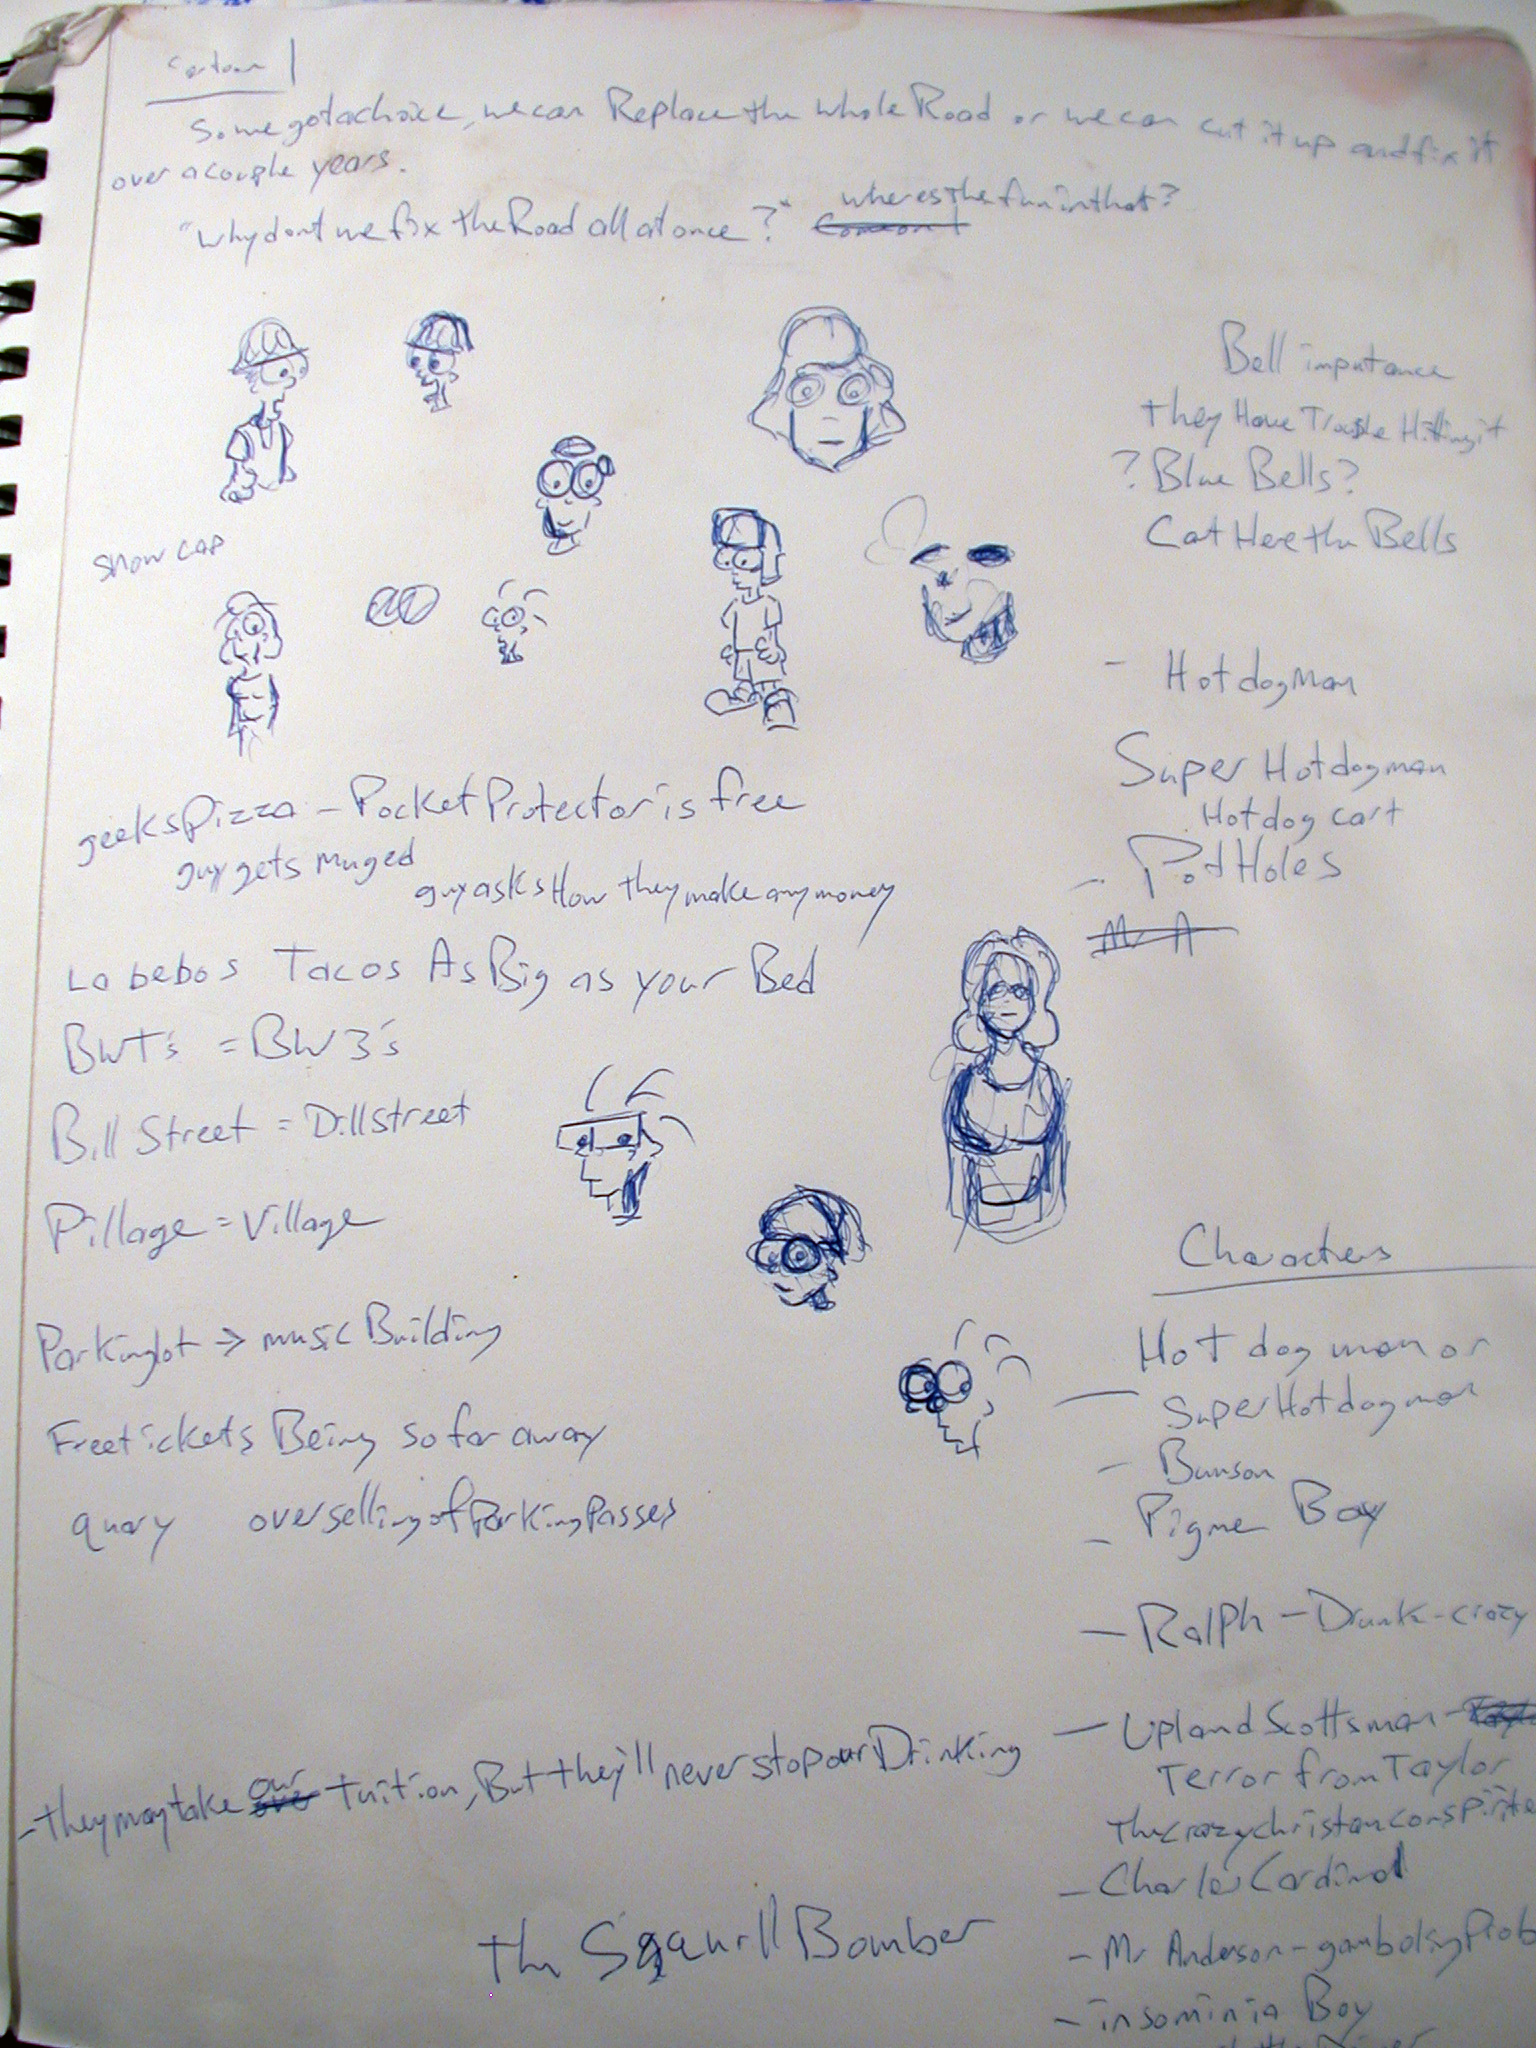 Cartoon 1
Some gotachoice, we can Replace the whole Road or we can cut it up and fix it
over a couple years.
wheres the fun in that?
"Why dont we fix the Road all at once?"
Bell imputance
they Have Trouble Hitting it
? Blue Bells?
Cat Here the Bells
Snow cap
- Hotdog Man
Super Hotdogman
Hotdog cart
- Pot Holes
Mr A
geeks Pizza - Pocket Protector is free
guy gets muged
guy asks How they make any money
La bebos Tacos As Big as your Bed
BWT's = BW3's
Bill Street = Dillstreet
Pillage = Village
Parkinglot → music Building
Free tickets Being so far away
quary overselling of Parking Passes
Characters
- Hot dog man or
Super Hotdog man
- Bunson
- Pigme Boy
- Ralph - Drunk - crazy
- Upland Scottsman -
Terror from Taylor
The crazy christan
- Charles Cardinal
- Mr Anderson - gambolsing Prob
- insominia Boy
- they may take our Tuition, But they'll never stop our Drinking
the Sqaurll Bomber